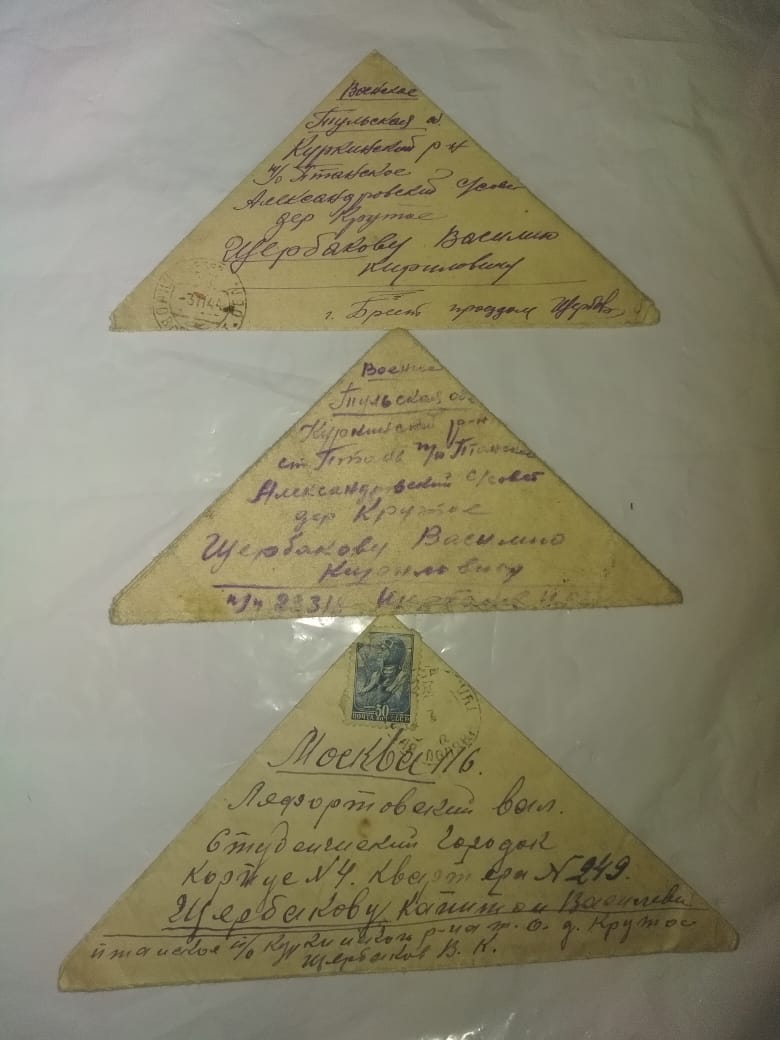 Воинское
Тульская о
Куркинский р-н
п/о Птанское
Александровский с/совет
дер Крутое
Щербакову Василию
Кириловичу
г. Брест проездом Щербаков
Тульская обл
Куркинский р-н
ст Птань п/о Птанское
Александровский с/совет
дер Крутое
Щербакову Василию
Кириловичу
п/п
50
ПОЧТА СССР
Москва 116.
Лефортовский вал.
Студенческий Городок
Корпус N4. Квартира N 249.
Щербакову Капитон Василеви
птанское п/о Куркинског р-на т. о. д. Крутое
Щербаков В. К.